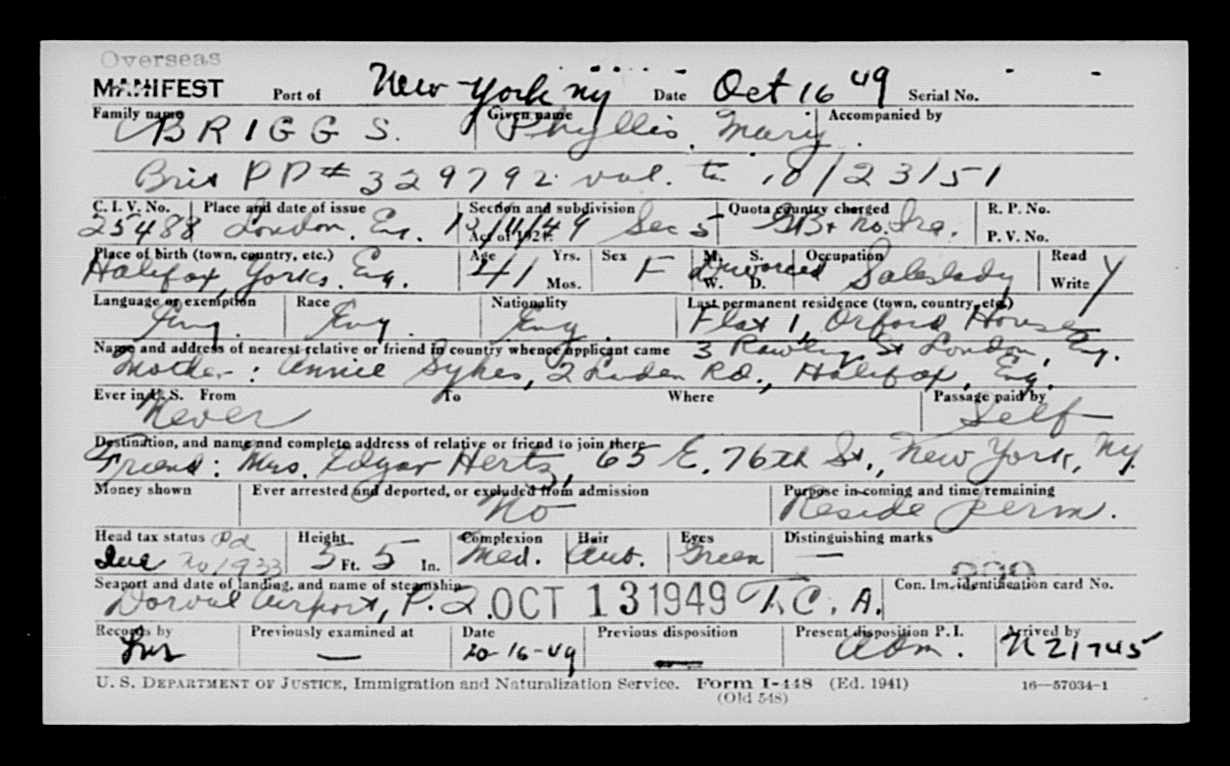 Overseas
MANIFEST Port of New York NY Date Oct 16 49 Serial No.
Family name BRIGGS. Given name Phyllis Mary. Accompanied by
Brit PP# 329792 val. to 10/23/51
C. I. V. No. 25488 Place and date of issue London, Eng. Section and subdivision Act of 1924 Sec 5 Quota country charged GB + No. Ire. R. P. No. P. V. No.
Place of birth (town, country, etc.) Halifax, Yorks. Eng. Age 41 Yrs. Mos. Sex F M. S. W. D. Divorced Occupation Saleslady Read Write Y
Language or exemption Eng. Race Eng. Nationality Eng. Last permanent residence (town, country, etc.) Flat 1, Orford House
Name and address of nearest relative or friend in country whence applicant came 3 St London, Eng.
Mother: Annie Sykes, 2 Rd., Halifax, Eng.
Ever in U. S. From Never To Where Passage paid by Self
Destination, and name and complete address of relative or friend to join there
Friend: Mrs. Edgar Hertz, 65 E. 76th St., New York, NY.
Money shown Ever arrested and deported, or excluded from admission No Purpose in coming and time remaining Reside perm.
Head tax status Pd Height 5 Ft. 5 In. Complexion Med. Hair Aub. Eyes Green Distinguishing marks —
Seaport and date of landing, and name of steamship Dorval Airport, P.Q. OCT 13 1949 T.C.A. Con. Im. identification card No.
Records by Previously examined at — Date 10-16-49 Previous disposition — Present disposition P. I. Adm. Arrived by N21745
U. S. DEPARTMENT OF JUSTICE, Immigration and Naturalization Service. Form I-448 (Ed. 1941) 16—57034-1
(Old 548)